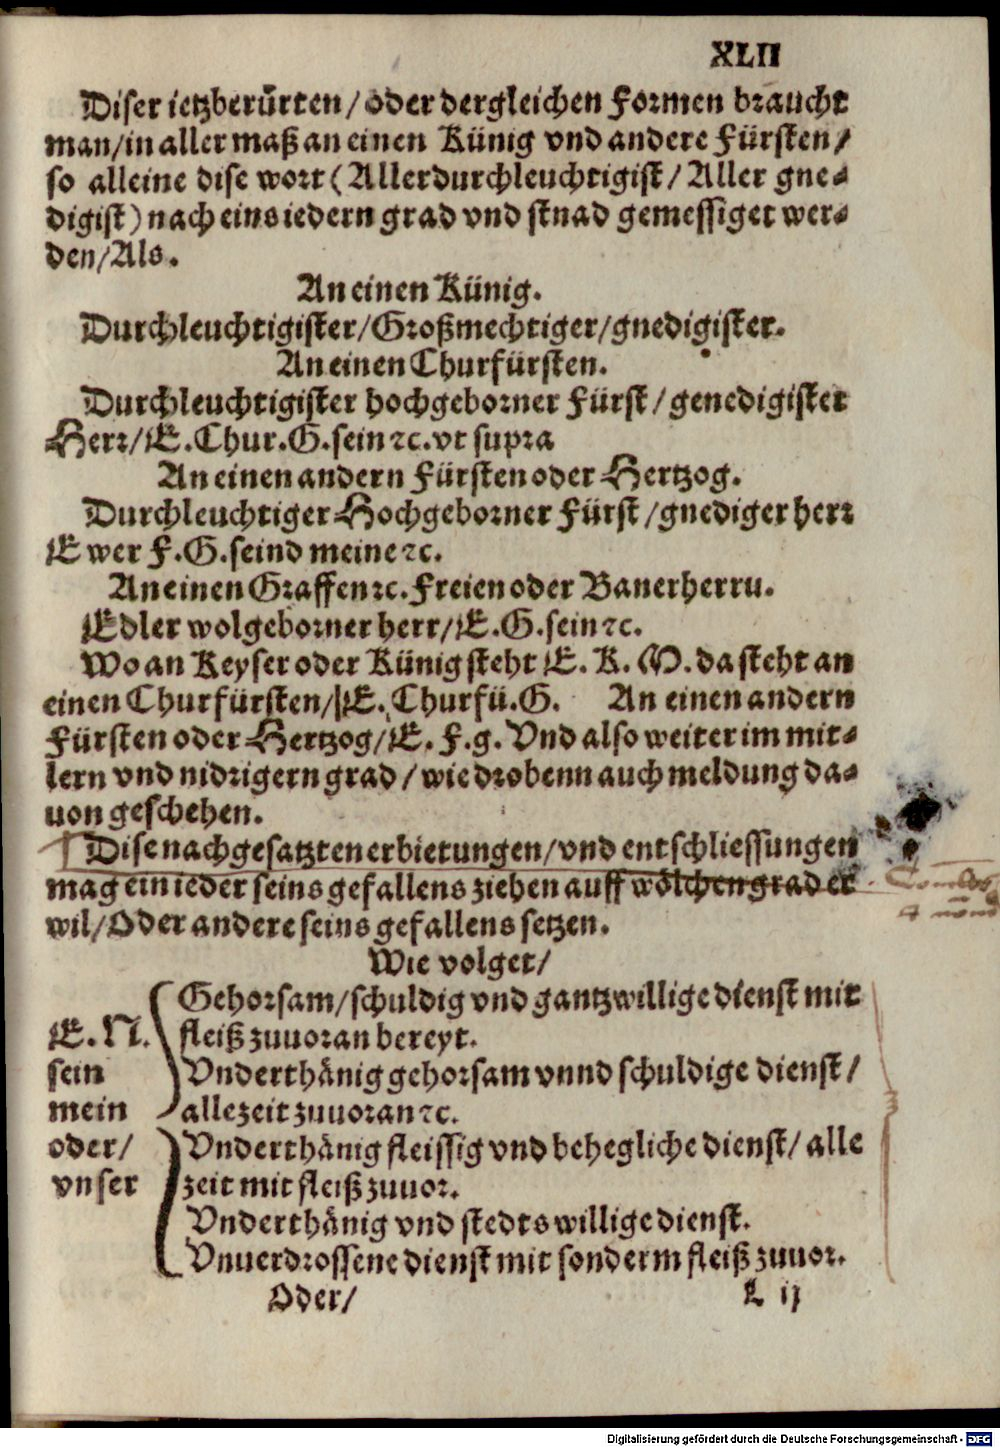 XLII
Diser ietzberürten/ oder dergleichen Formen braucht
man/in aller maß an einen Künig vnd andere Fürsten/
so alleine dise wort ( Allerdurchleuchtigist/ Aller gne⸗
digist) nach eins iedern grad vnd stnad gemessiget wer⸗
den/Als.
An einen Künig.
Durchleuchtigister/Großmechtiger/gnedigister.
An einen Churfürsten.
Durchleuchtigister hochgeborner Fürst/genedigister
Herr/E.Chur.G.sein ꝛc.vt supra
An einen andern Fürsten oder Hertzog.
Durchleuchtiger Hochgeborner Fürst/gnediger herr
Ewer F.G.seind meine ꝛc.
An einen Graffen ꝛc. Freien oder Banerherru.
Edler wolgeborner herr/E.G.sein ꝛc.
Wo an Keyser oder Künig steht E. K. M. da steht an
einen Churfürsten/E. Churfü.G. An einen andern
Fürsten oder Hertzog/E. F.g. Vnd also weiter im mit⸗
lern vnd nidrigern grad/ wie drobenn auch meldung da⸗
uon geschehen.
Dise nachgesatzten erbietungen/vnd entschliessungen
mag ein ieder seins gefallens ziehen auff wölchen grad er
wil/Oder andere seins gefallens setzen.
Wie volget/
Gehorsam/schuldig vnd gantzwillige dienst mit
E.N. fleiß zuuoran bereyt.
sein Vnderthänig gehorsam vnnd schuldige dienst/
mein allezeit zuuoran ꝛc.
oder/ Vnderthänig fleissig vnd behegliche dienst/ alle
vnser zeit mit fleiß zuuor.
Vnderthänig vnd stedts willige dienst.
Vnuerdrossene dienst mit sonderm fleiß zuuor.
Oder/ L ij
Digitalisierung gefördert durch die Deutsche Forschungsgemeinschaft - DFG